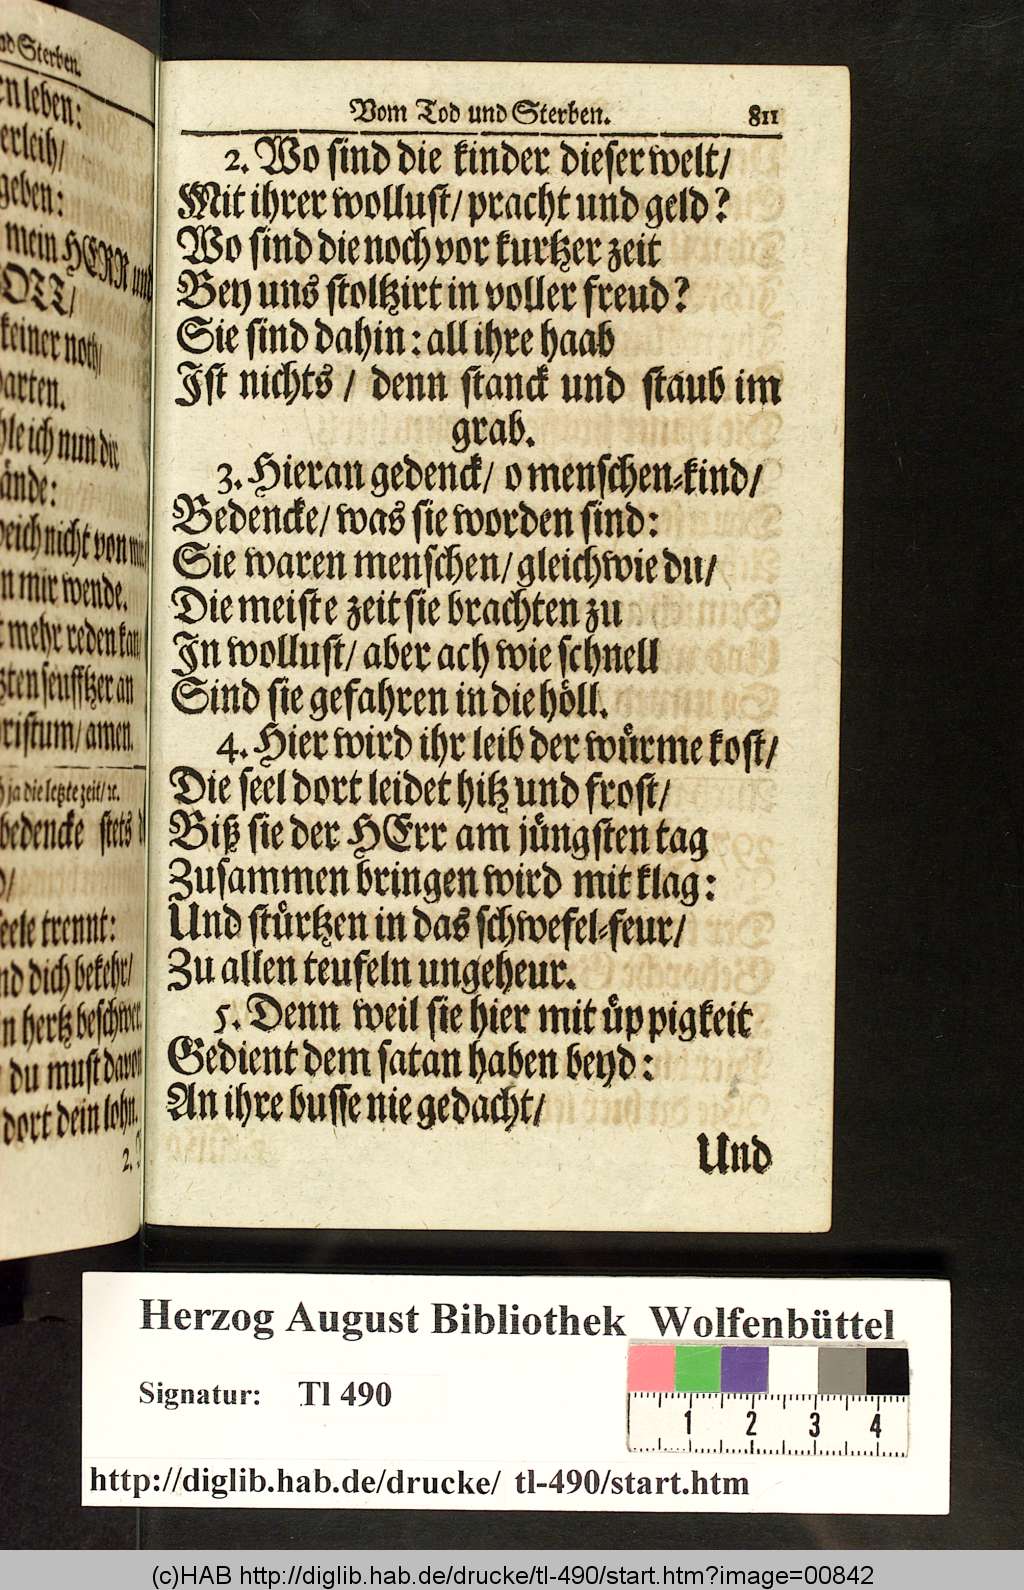 nd Sterben.
n leben:
erleih/
geben:
mein HERR und
OTT/
keiner noch/
arten.
le ich nun die
ände:
eich nicht von mir/
n mir wende.
mehr reden kan/
ten seufftzer an
ristum/ amen.
ja die letzte zeit/ ꝛc.
bedencke stets
/
eele trennt:
nd dich bekehr/
n hertz beschwer.
du must davon
dort dein lohn.
2.
Vom Tod und Sterben. 811
2. Wo sind die kinder dieser welt/
Mit ihrer wollust/ pracht und geld?
Wo sind die noch vor kurtzer zeit
Bey uns stoltzirt in voller freud?
Sie sind dahin: all ihre haab
Ist nichts / denn stanck und staub im
grab.
3. Hieran gedenck/ o menschen-kind/
Bedencke/ was sie worden sind:
Sie waren menschen/ gleichwie du/
Die meiste zeit sie brachten zu
In wollust/ aber ach wie schnell
Sind sie gefahren in die höll.
4. Hier wird ihr leib der würme kost/
Die seel dort leidet hitz und frost/
Biß sie der HErr am jüngsten tag
Zusammen bringen wird mit klag:
Und stürtzen in das schwefel-feur/
Zu allen teufeln ungeheur.
5. Denn weil sie hier mit üppigkeit
Gedient dem satan haben beyd:
An ihre busse nie gedacht/
Und
Herzog August Bibliothek Wolfenbüttel
Signatur: Tl 490
1 2 3 4
http://diglib.hab.de/drucke/ tl-490/start.htm
(c)HAB http://diglib.hab.de/drucke/tl-490/start.htm?image=00842